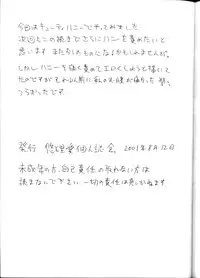 今回はキューティハニーでやってみました
次回もこの続きでさらにハニーを責めたいと
思います またなかのものになるかもしれませんが、
しかしハニーを強く責めてエロくしようと描いて
たのですがそれ以前に私のお腹が痛かった
つらかったです
発行 2001年8月12日
未成年の方、自己責任の取れない方は
読まないで下さい 一切の責任は負いかねます